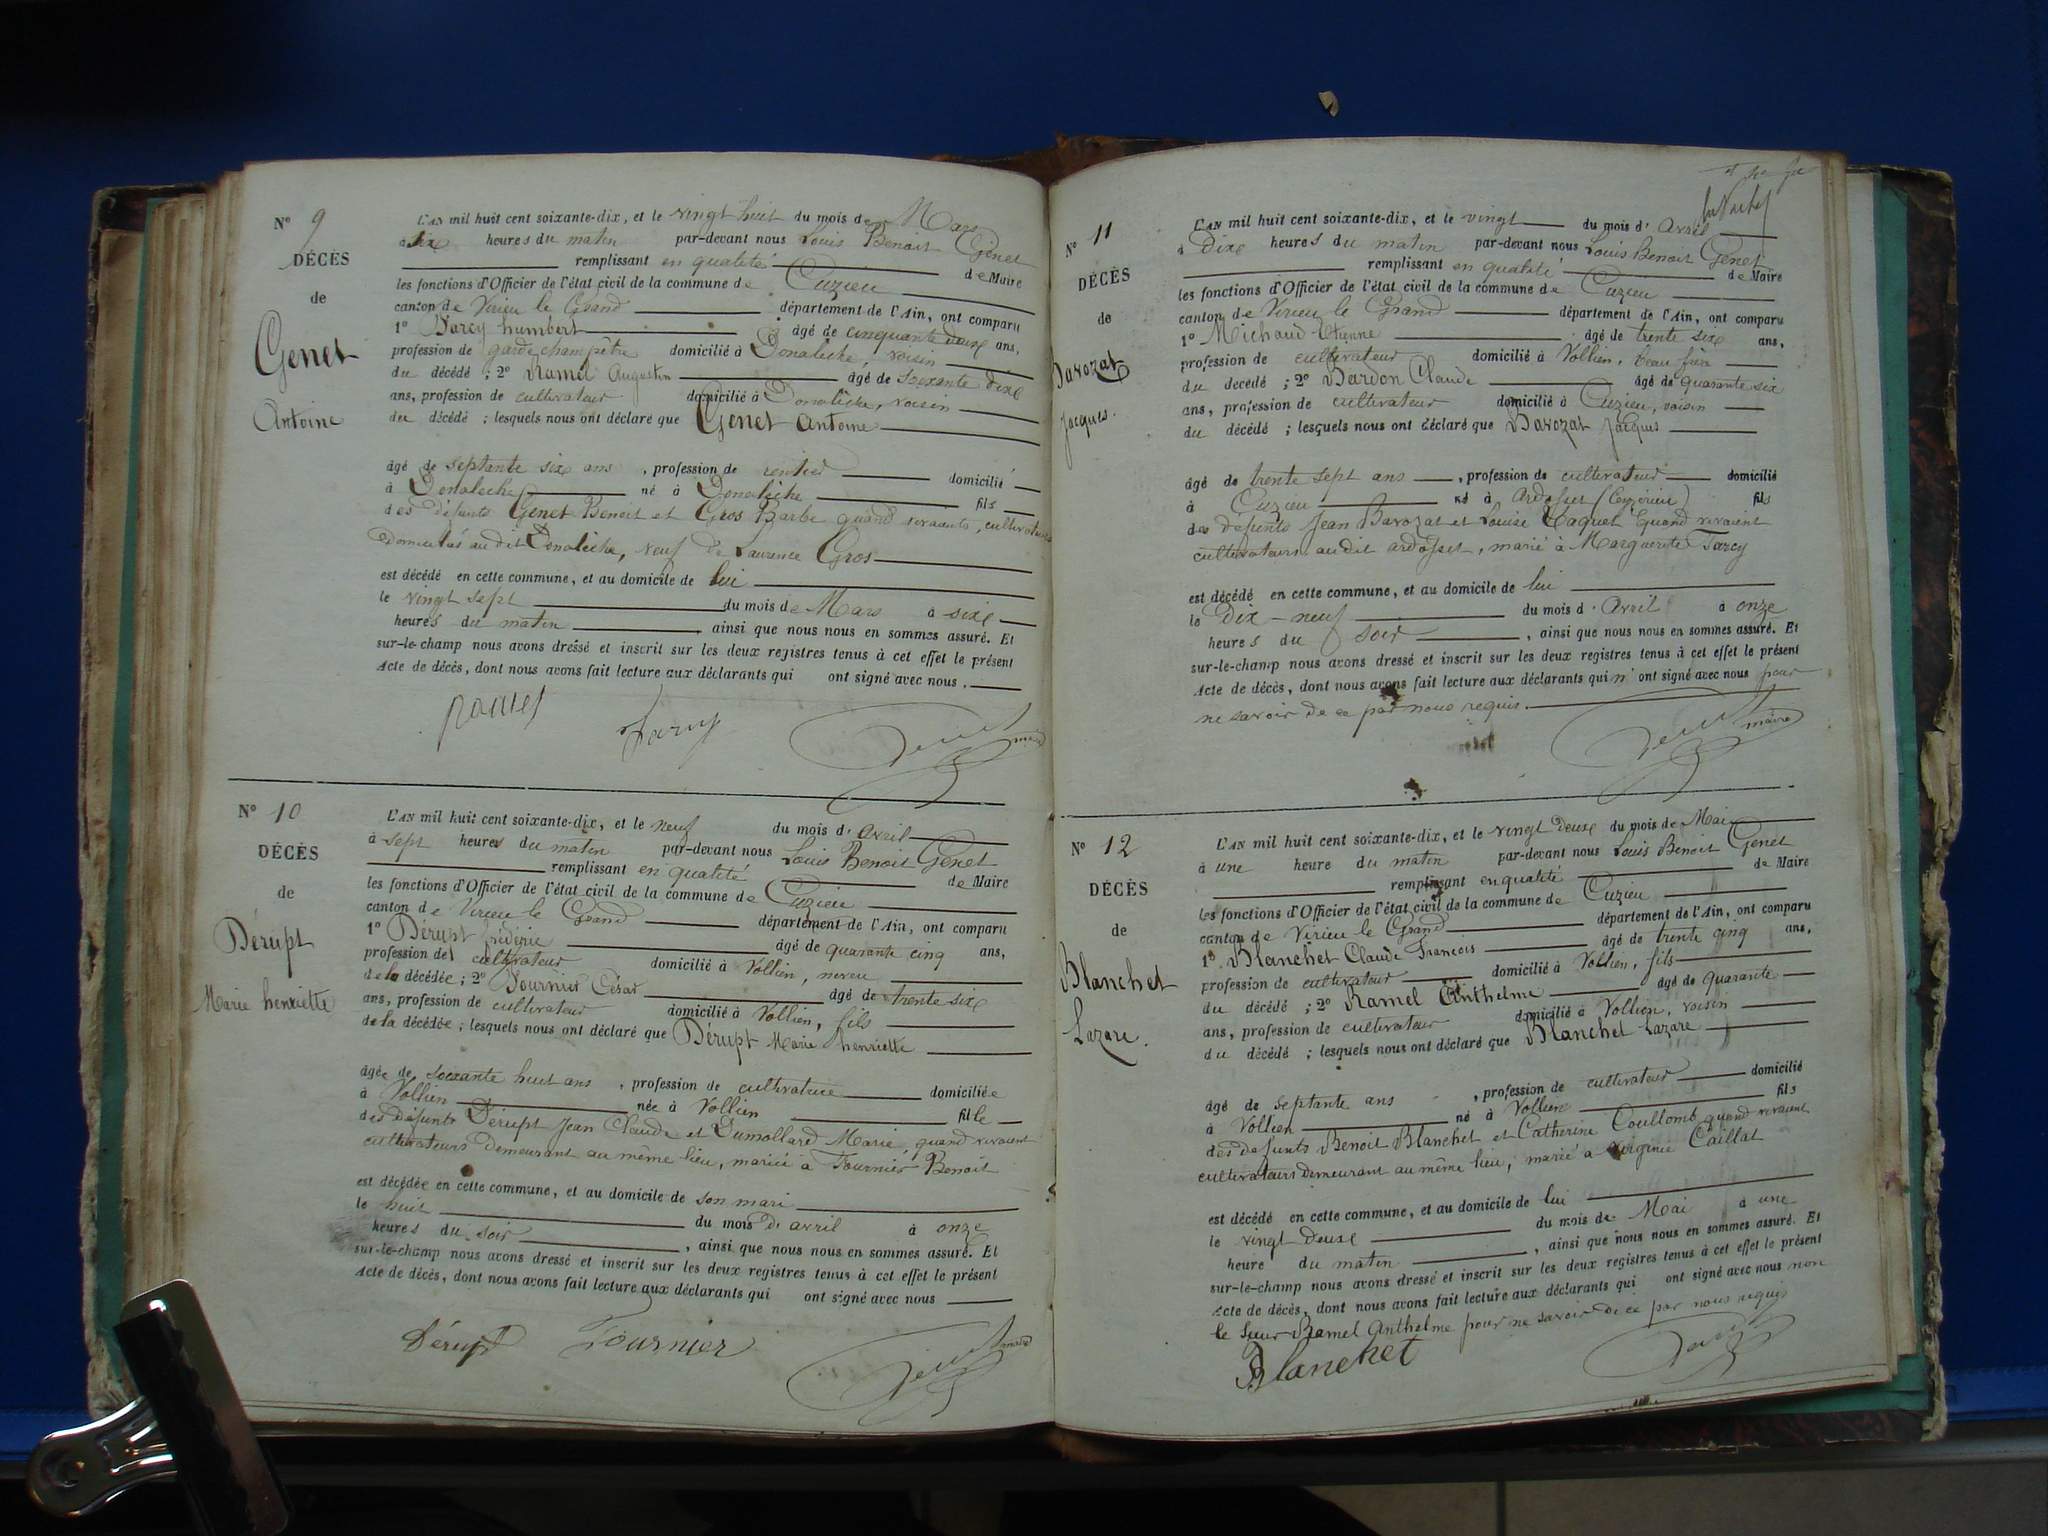 N° 9
DÉCÈS
de
Genet
Antoine
L'AN mil huit cent soixante-dix, et le vingt huit du mois de Mars
à dix heures du matin par-devant nous Louis Benoit Genet
remplissant en qualité de Maire
les fonctions d'Officier de l'état civil de la commune de Cuzieu
canton de Virieu le Grand département de l'Ain, ont comparu
1° Darcy humbert âgé de cinquante deux ans,
profession de garde champêtre domicilié à Donalèche, voisin
du décédé ; 2° Ramel Augustin âgé de soixante dixe
ans, profession de cultivateur domicilié à Donalèche, voisin
du décédé ; lesquels nous ont déclaré que Genet Antoine
âgé de septante sixe ans, profession de rentier domicilié
à Donalèche né à Donalèche fils
des défunts Genet Benoit et Gros Barbe quand vivaients, cultivateurs
domiciliés au dit Donalèche, veuf de Laurence Gros
est décédé en cette commune, et au domicile de lui
le vingt sept du mois de Mars à sixe
heures du matin, ainsi que nous nous en sommes assuré. Et
sur-le-champ nous avons dressé et inscrit sur les deux registres tenus à cet effet le présent
Acte de décès, dont nous avons fait lecture aux déclarants qui ont signé avec nous.
Ramel Darcy Genet maire
N° 10
DÉCÈS
de
Dérupt
Marie henriette
L'AN mil huit cent soixante-dix, et le neuf du mois d'avril
à sept heures du matin par-devant nous Louis Benoit Genet
remplissant en qualité de Maire
les fonctions d'Officier de l'état civil de la commune de Cuzieu
canton de Virieu le Grand département de l'Ain, ont comparu
1° Dérupt frédéric âgé de quarante cinq ans,
profession de cultivateur domicilié à Vollien, neveu
de la décédée ; 2° Fournier César âgé de trente sixe
ans, profession de cultivateur domicilié à Vollien, fils
de la décédée ; lesquels nous ont déclaré que Dérupt Marie henriette
âgée de soixante huit ans, profession de cultivatrice domiciliée
à Vollien née à Vollien fille
des défunts Dérupt Jean Claude et Dumollard Marie, quand vivaient
cultivateurs demeurant au même lieu, mariée à Fournier Benoit
est décédée en cette commune, et au domicile de son mari
le huit du mois de avril à onze
heures du soir, ainsi que nous nous en sommes assuré. Et
sur-le-champ nous avons dressé et inscrit sur les deux registres tenus à cet effet le présent
Acte de décès, dont nous avons fait lecture aux déclarants qui ont signé avec nous
Dérupt Fournier Genet maire
N° 11
DÉCÈS
de
Bavozat
Jacques.
L'AN mil huit cent soixante-dix, et le vingt du mois d'avril
à Dixe heures du matin par-devant nous Louis Benoit Genet
remplissant en qualité de Maire
les fonctions d'Officier de l'état civil de la commune de Cuzieu
canton de Virieu le Grand département de l'Ain, ont comparu
1° Michaud Etienne âgé de trente sixe ans,
profession de cultivateur domicilié à Vollien, beau frère
du décédé ; 2° Bardon Claude âgé de quarante six
ans, profession de cultivateur domicilié à Cuzieu, voisin
du décédé ; lesquels nous ont déclaré que Bavozat Jacques
âgé de trente sept ans, profession de cultivateur domicilié
à Cuzieu né à Ardosset (Ceyzérieu) fils
des défunts Jean Bavozat et Louise quand vivaient
cultivateurs audit ardosset, marié à Marguerite Tarcy
est décédé en cette commune, et au domicile de lui
le Dix-neuf du mois d'avril à onze
heures du soir, ainsi que nous nous en sommes assuré. Et
sur-le-champ nous avons dressé et inscrit sur les deux registres tenus à cet effet le présent
Acte de décès, dont nous avons fait lecture aux déclarants qui n'ont signé avec nous pour
ne savoir de ce par nous requis.
Genet maire
N° 12
DÉCÈS
de
Blanchet
Lazare.
L'AN mil huit cent soixante-dix, et le vingt deuxe du mois de Mai
à une heure du matin par-devant nous Louis Benoit Genet
remplissant en qualité de Maire
les fonctions d'Officier de l'état civil de la commune de Cuzieu
canton de Virieu le Grand département de l'Ain, ont comparu
1° Blanchet Claude Francois âgé de trente cinq ans,
profession de cultivateur domicilié à Vollien, fils
du décédé ; 2° Ramel Anthelme âgé de quarante
ans, profession de cultivateur domicilié à Vollien, voisin
du décédé ; lesquels nous ont déclaré que Blanchet Lazare
âgé de septante ans, profession de cultivateur domicilié
à Vollien né à Vollien fils
des defunts Benoit Blanchet et Catherine Coullomb quand vivaient
cultivateurs demeurant au même lieu, marié à virginie Caillat
est décédé en cette commune, et au domicile de lui
le vingt Deuxe du mois de Mai à une
heure du matin, ainsi que nous nous en sommes assuré. Et
sur-le-champ nous avons dressé et inscrit sur les deux registres tenus à cet effet le présent
Acte de décès, dont nous avons fait lecture aux déclarants qui ont signé avec nous non
le sieur Ramel Anthelme pour ne savoir de ce par nous requis
Blanchet Genet